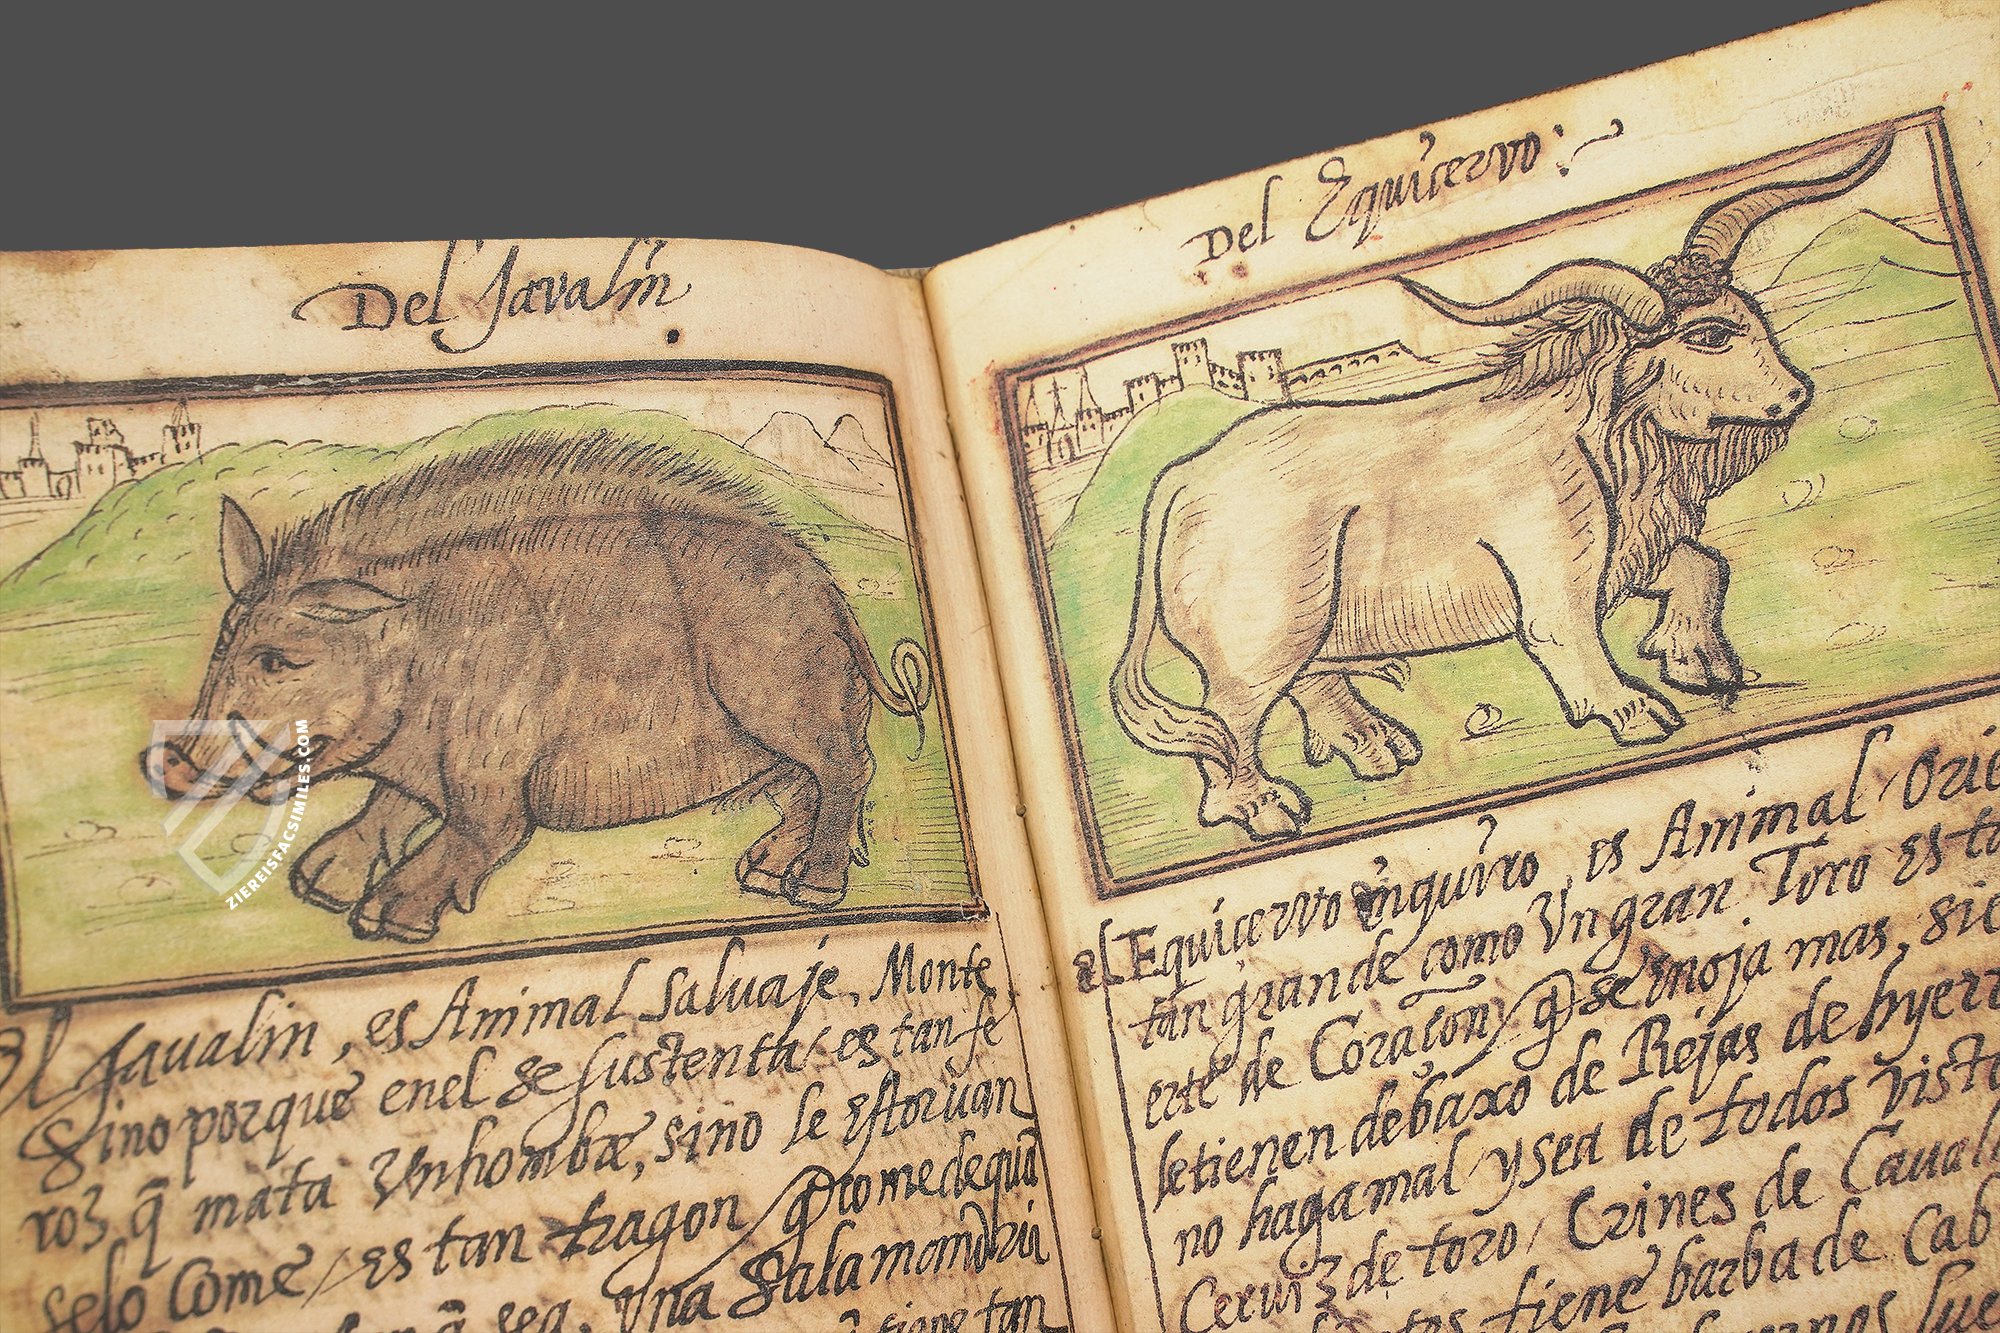 Del Javalin
El Javalin, es Animal Salvaje, Monte
Sino porque enel se sustenta / es tan fe
roz q̃ mata Un hombre, sino le estorvan
selo come / es tan tragon q̃ come de qua
sea, Una Salamandri
tiene tan
Del Equicervo
el Equicervo es Animal / Orie
tan grande como Un gran Toro es ta
erte de Coraçon q̃ se enoja mas, sie
letienen debaxo de Rejas de hyerr
no haga mal / y sea de todos vist
Cerviz de toro / Crines de Cavall
tiene barba de Cab
ZIEREISFACSIMILES.COM